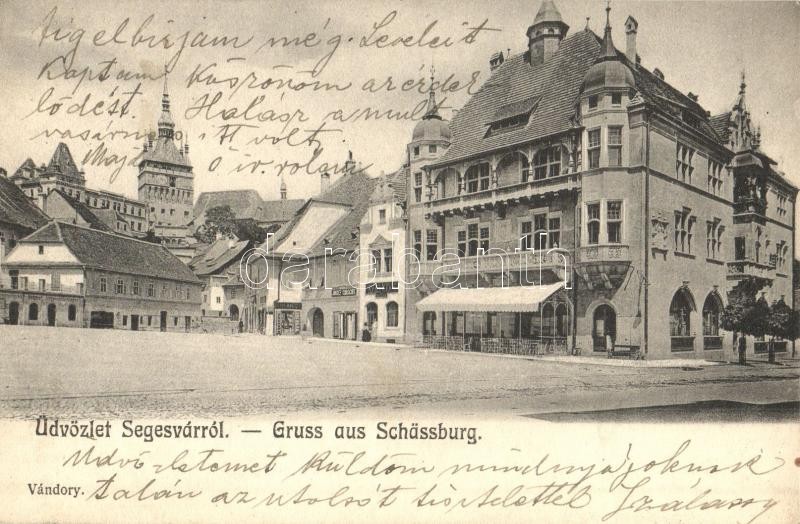 Tigelbirjam még. Leveleit
Kaptam Köszönöm az érdek
lődést. Halász a mult
vasárnap itt volt
Majd ő ír. rólam
darabanth.com
Üdvözlet Segesvárról. — Gruss aus Schässburg.
Üdvözletemet küldöm mindnyájoknak
Vándory.
talán az utolsót tisztelettel Szálassy